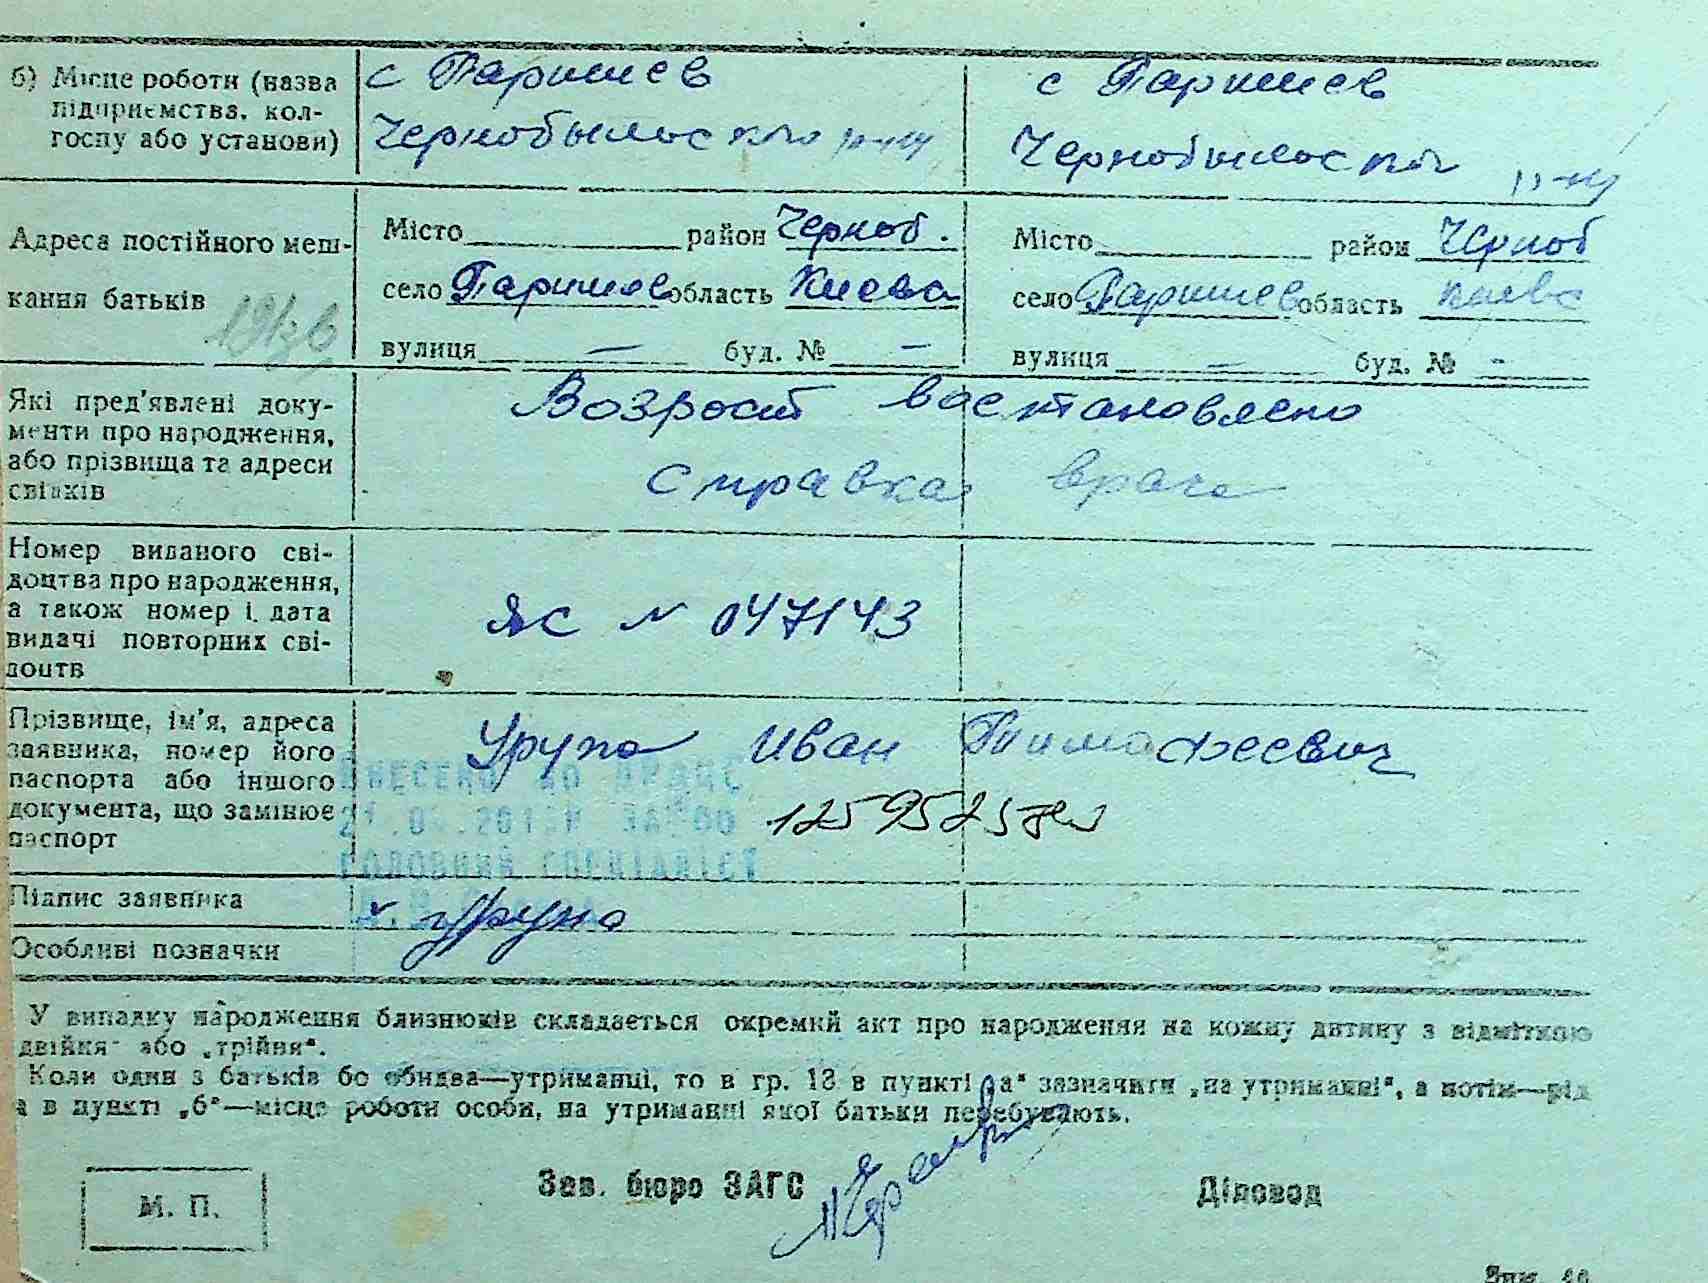 б) Місце роботи (назва підприємства, колгоспу або установи)
с Паришев
Чернобыльского р-ну
с Паришев
Чернобыльског р-ну
Адреса постійного меш-
кання батьків
Місто район Черноб.
село Паришев область Киева
вулиця — буд. № —
Місто район Черноб
село Паришев область Киевс
вулиця — буд. № -
Які пред'явлені доку-
менти про народження,
або прізвища та адреси
свідків
Возраст востановлено
справка врача
Номер виданого сві-
доцтва про народження,
а також номер і дата
видачі повторних сві-
доцтв
ЯС № 047143
Прізвище, ім'я, адреса
заявника, номер його
паспорта або іншого
документа, що замінює
паспорт
Урупа Иван Тимофеевич
1259525
ВНЕСЕНО ДО ДРАЦС
ГОЛОВНИЙ СПЕЦІАЛІСТ
Підпис заявника
v Урупа
Особливі позначки
У випадку народження близнюків складається окремий акт про народження на кожну дитину з відміткою
двійня" або „трійня".
Коли один з батьків бо обидва—утриманці, то в гр. 13 в пункті „а" зазначити „на утриманні", а потім—під
а в пункті „б"—місце роботи особи, на утриманні якої батьки перебувають.
М. П.
Зав. бюро ЗАГС
Діловод